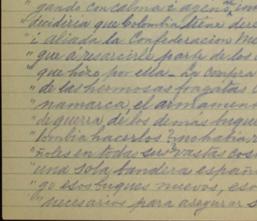 "gando con calma i agena
"decidiria que Colombia tiene dere
"i aliada la Confederacion Me
"que a resarcirle parte de los
"que hizo por ella - La compra
"de las hermosas fragatas
"namarca, el armamen
"de guerra, de los demas buque
"lombia hacerlos i no habia
"ñoles en todas sus vastas cos
"una sola bandera españo
"go esos buques nuevos, eso
"necesarios para asegurar s